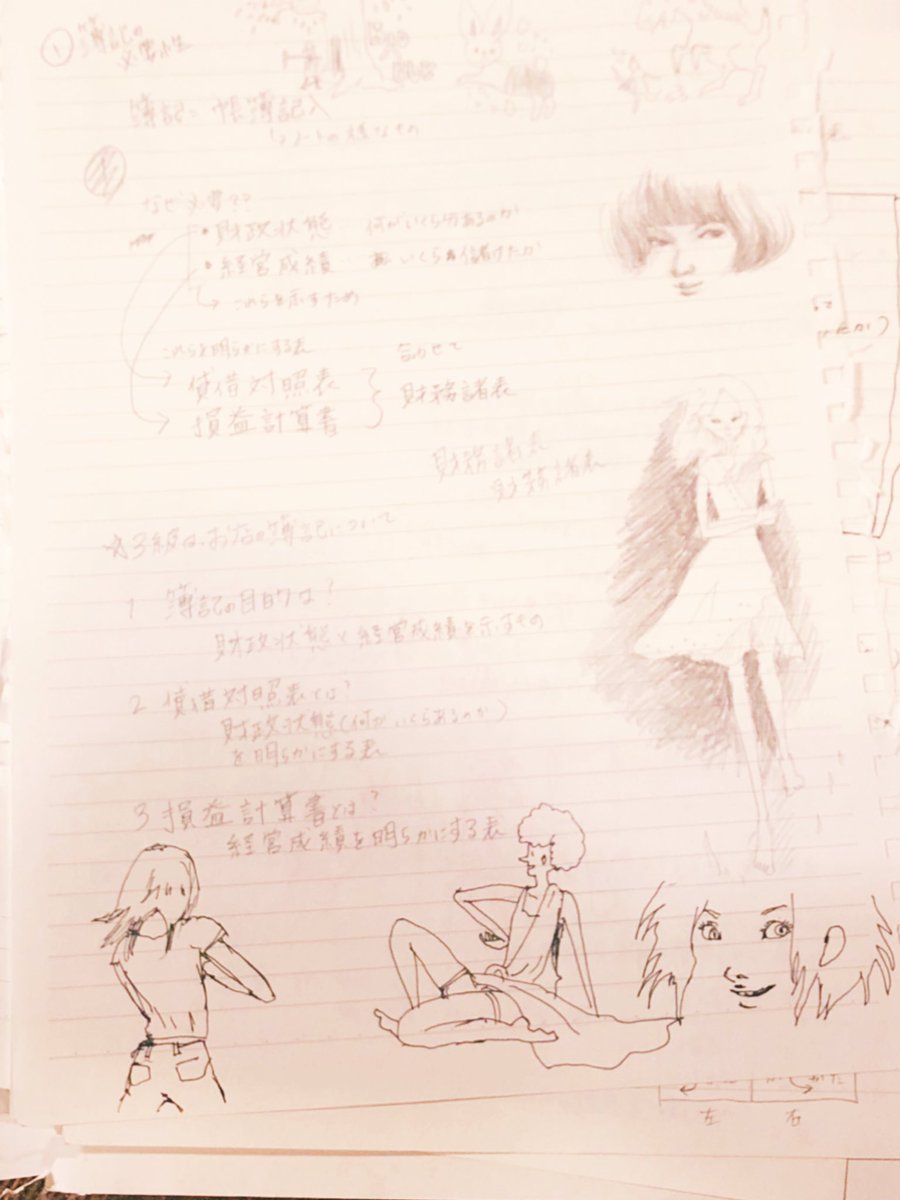 ① 簿記の
必要性
簿記＝帳簿記入
↳ノートの様なもの
なぜ必要??
・財政状態… 何がいくら分あるのか
・経営成績… いくら儲けたか
↳これらを示すため
これらを明らかにする表
貸借対照表
損益計算書
合わせて
財務諸表
財務諸表
財務諸表
☆3級は、お店の簿記について
1 簿記の目的は?
財政状態と経営成績を示すもの
2 貸借対照表とは?
財政状態(何がいくらあるのか)
を明らかにする表
3 損益計算書とは?
経営成績を明らかにする表
左 右